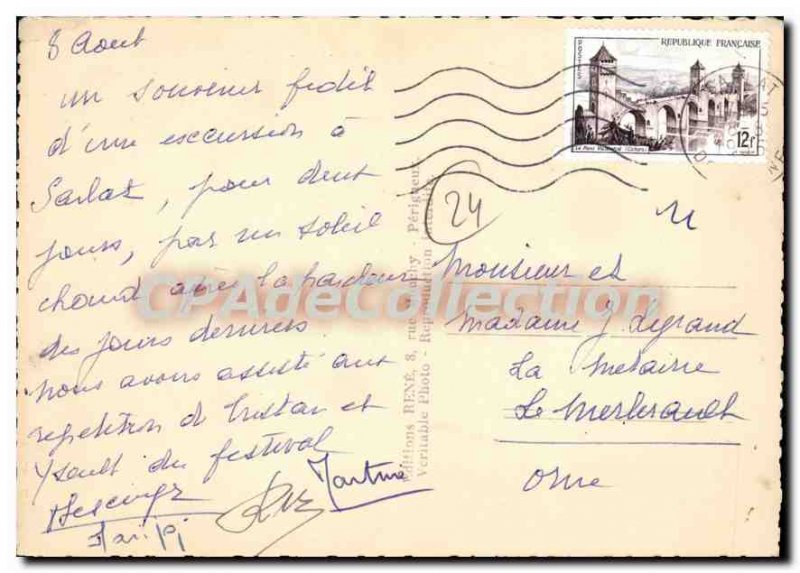 8 Aout
un souvenir fidèle
d'une excursion à
Sarlat, pour deux
jours, par un soleil
chaud après la fraicheur
des jours derniers.
nous avons assisté aux
repetition d Tristan et
Yseult du festival
Martine
REPUBLIQUE FRANÇAISE
POSTES
12f
Le Pont Valentré (Cahors)
24
Editions RENÉ, 8, rue Phy - Périgueux
Véritable Photo - Reproduction interdite
Monsieur et
Madame J Legrand
La Metairie
Le Merlerault
Orne
CPAdeCollection